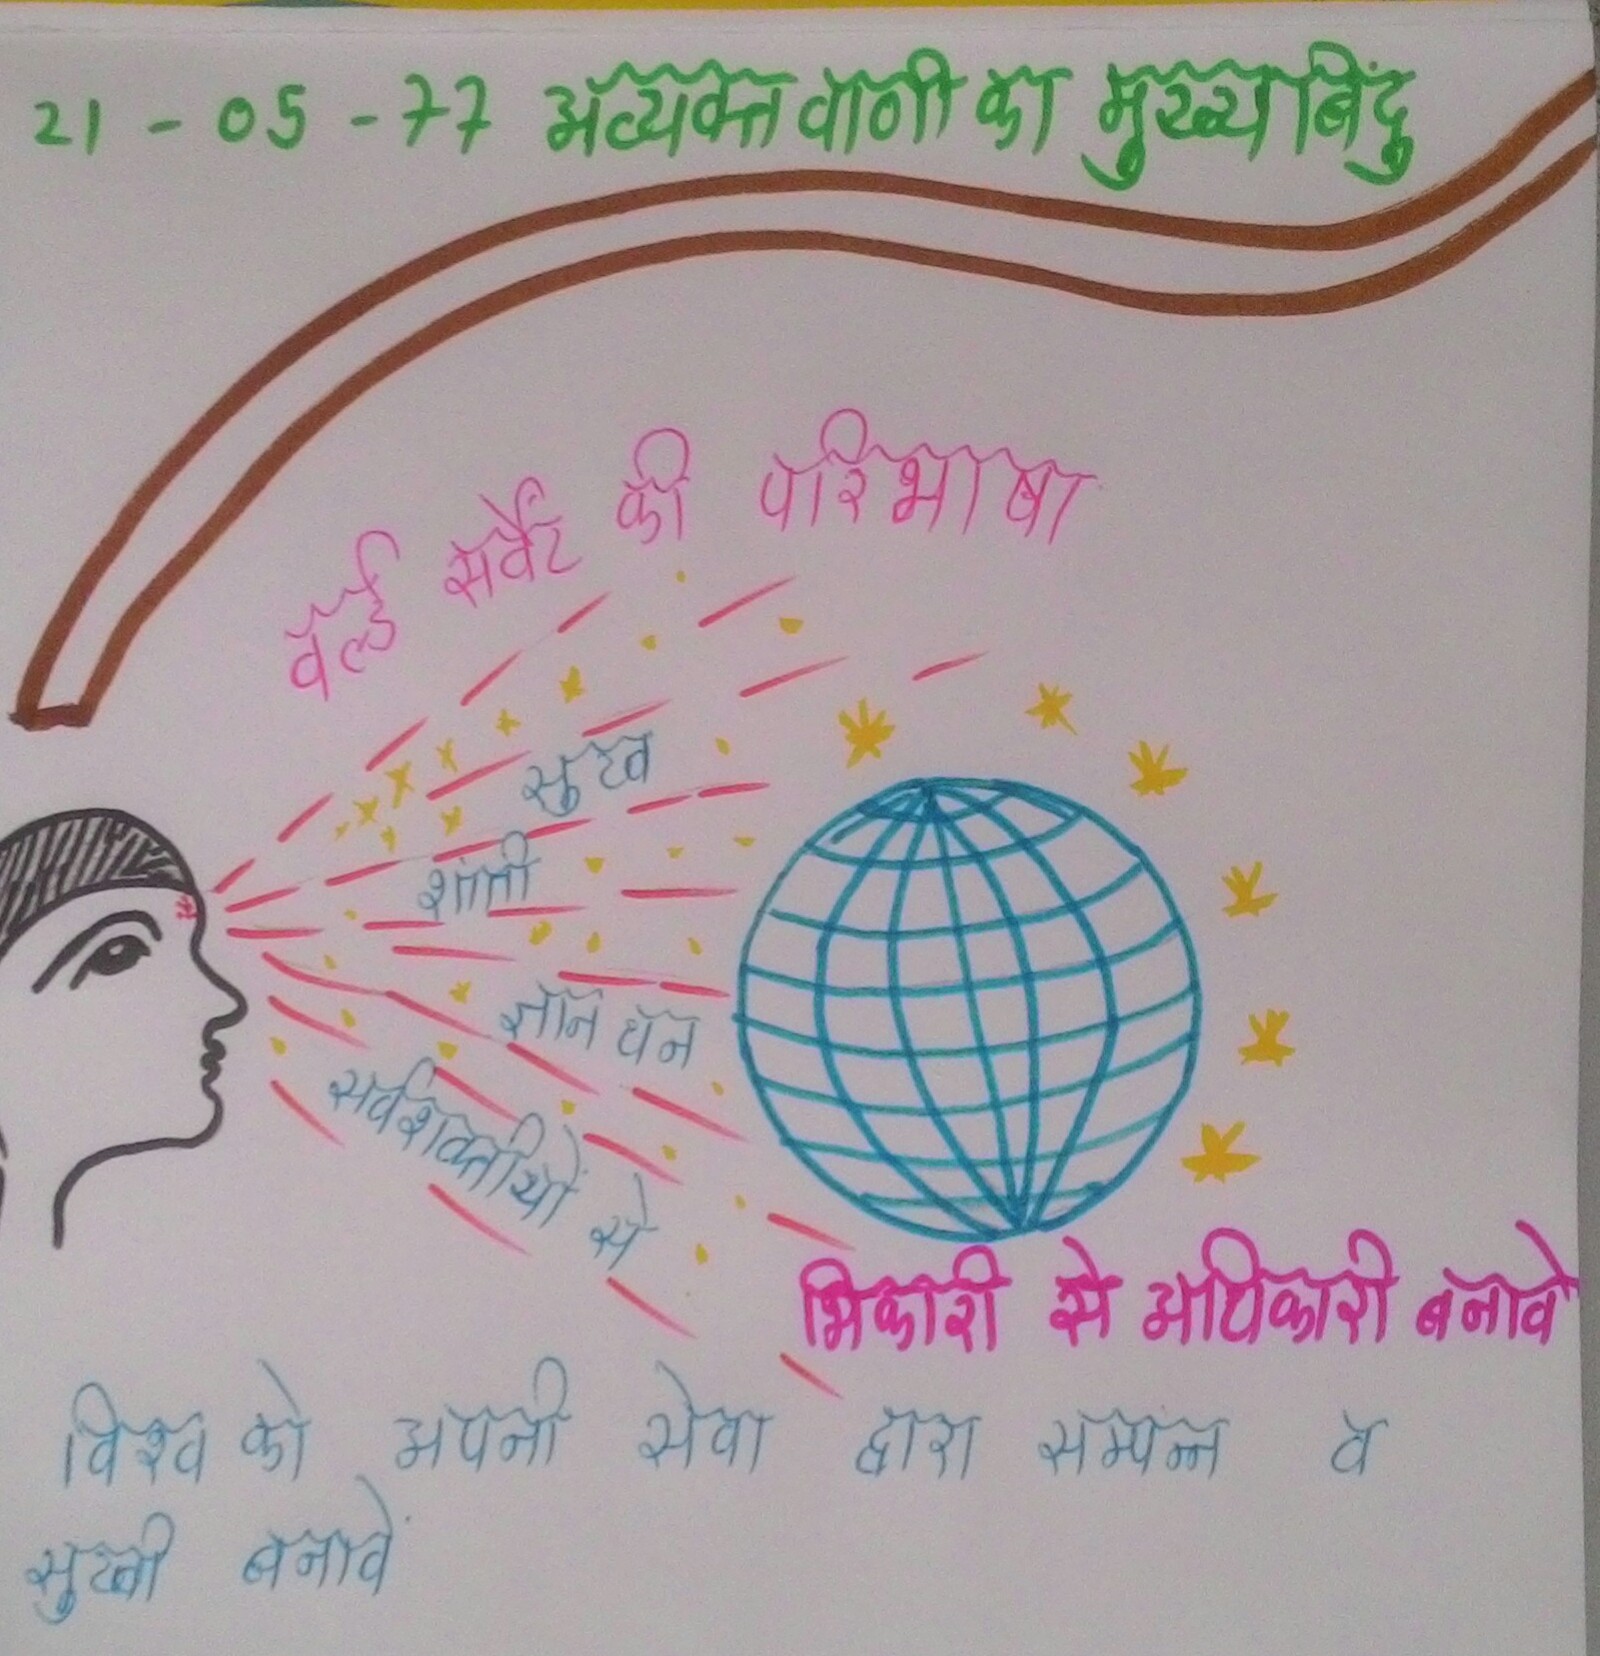 21-05-77 अव्यक्त वाणी का मुख्य बिंदु
वॅर्ल्ड सर्वेंट की परिभाषा
सुख
शांती
ज्ञान धन
सर्वशक्तीयों से
भिकारी से अधिकारी बनावे
विश्व को अपनी सेवा द्वारा सम्पन्न व
सुखी बनावें